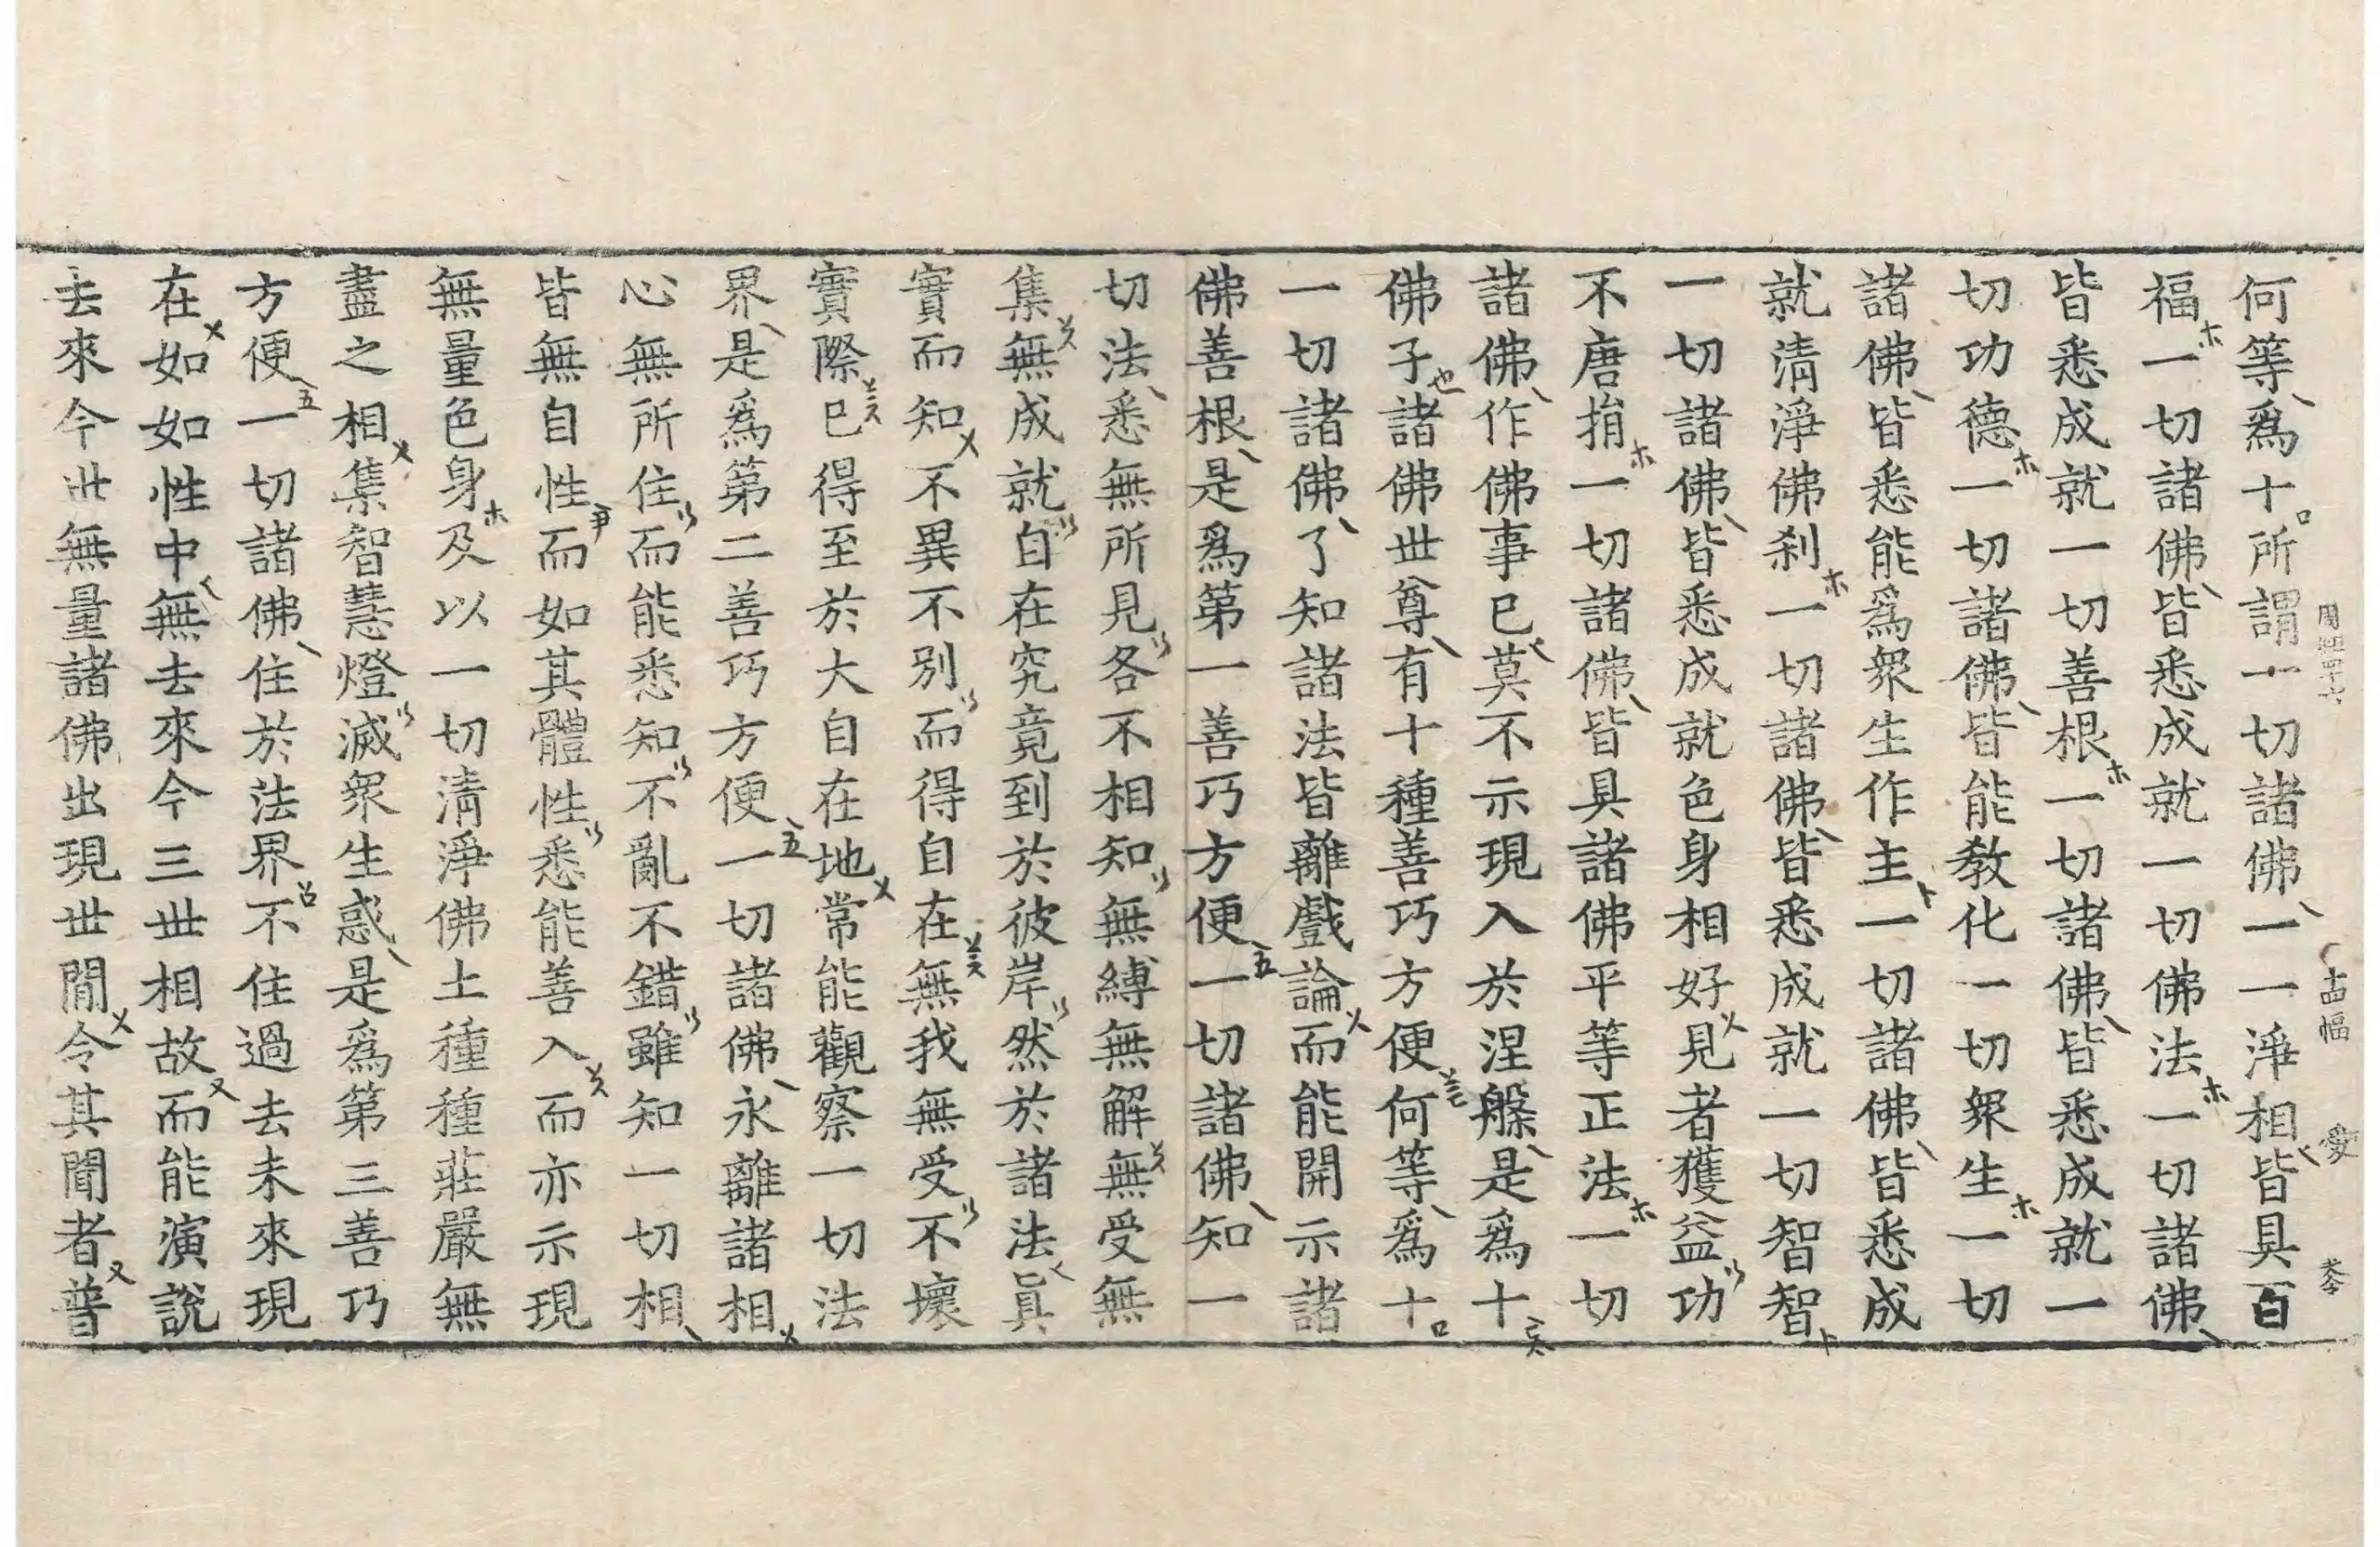 何等爲十所謂一切諸佛一一淨相皆具百
福一切諸佛皆悉成就一切佛法一切諸佛
皆悉成就一切善根一切諸佛皆悉成就一
切功德一切諸佛皆能敎化一切衆生一切
諸佛皆悉能爲衆生作主一切諸佛皆悉成
就淸淨佛刹一切諸佛皆悉成就一切智智
一切諸佛皆悉成就色身相好見者獲益功
不唐捐一切諸佛皆具諸佛平等正法一切
諸佛作佛事已莫不示現入於涅槃是爲十
佛子諸佛世尊有十種善巧方便何等爲十
一切諸佛了知諸法皆離戲論而能開示諸
佛善根是爲第一善巧方便一切諸佛知一
切法悉無所見各不相知無縛無解無受無
集無成就自在究竟到於彼岸然於諸法眞
實而知不異不別而得自在無我無受不壞
實際已得至於大自在地常能觀察一切法
界是爲第二善巧方便一切諸佛永離諸相
心無所住而能悉知不亂不錯雖知一切相
皆無自性而如其體性悉能善入而亦示現
無量色身及以一切淸淨佛土種種莊嚴無
盡之相集智慧燈滅衆生惑是爲第三善巧
方便一切諸佛住於法界不住過去未來現
在如如性中無去來今三世相故而能演說
去來今世無量諸佛出現世間令其聞者普